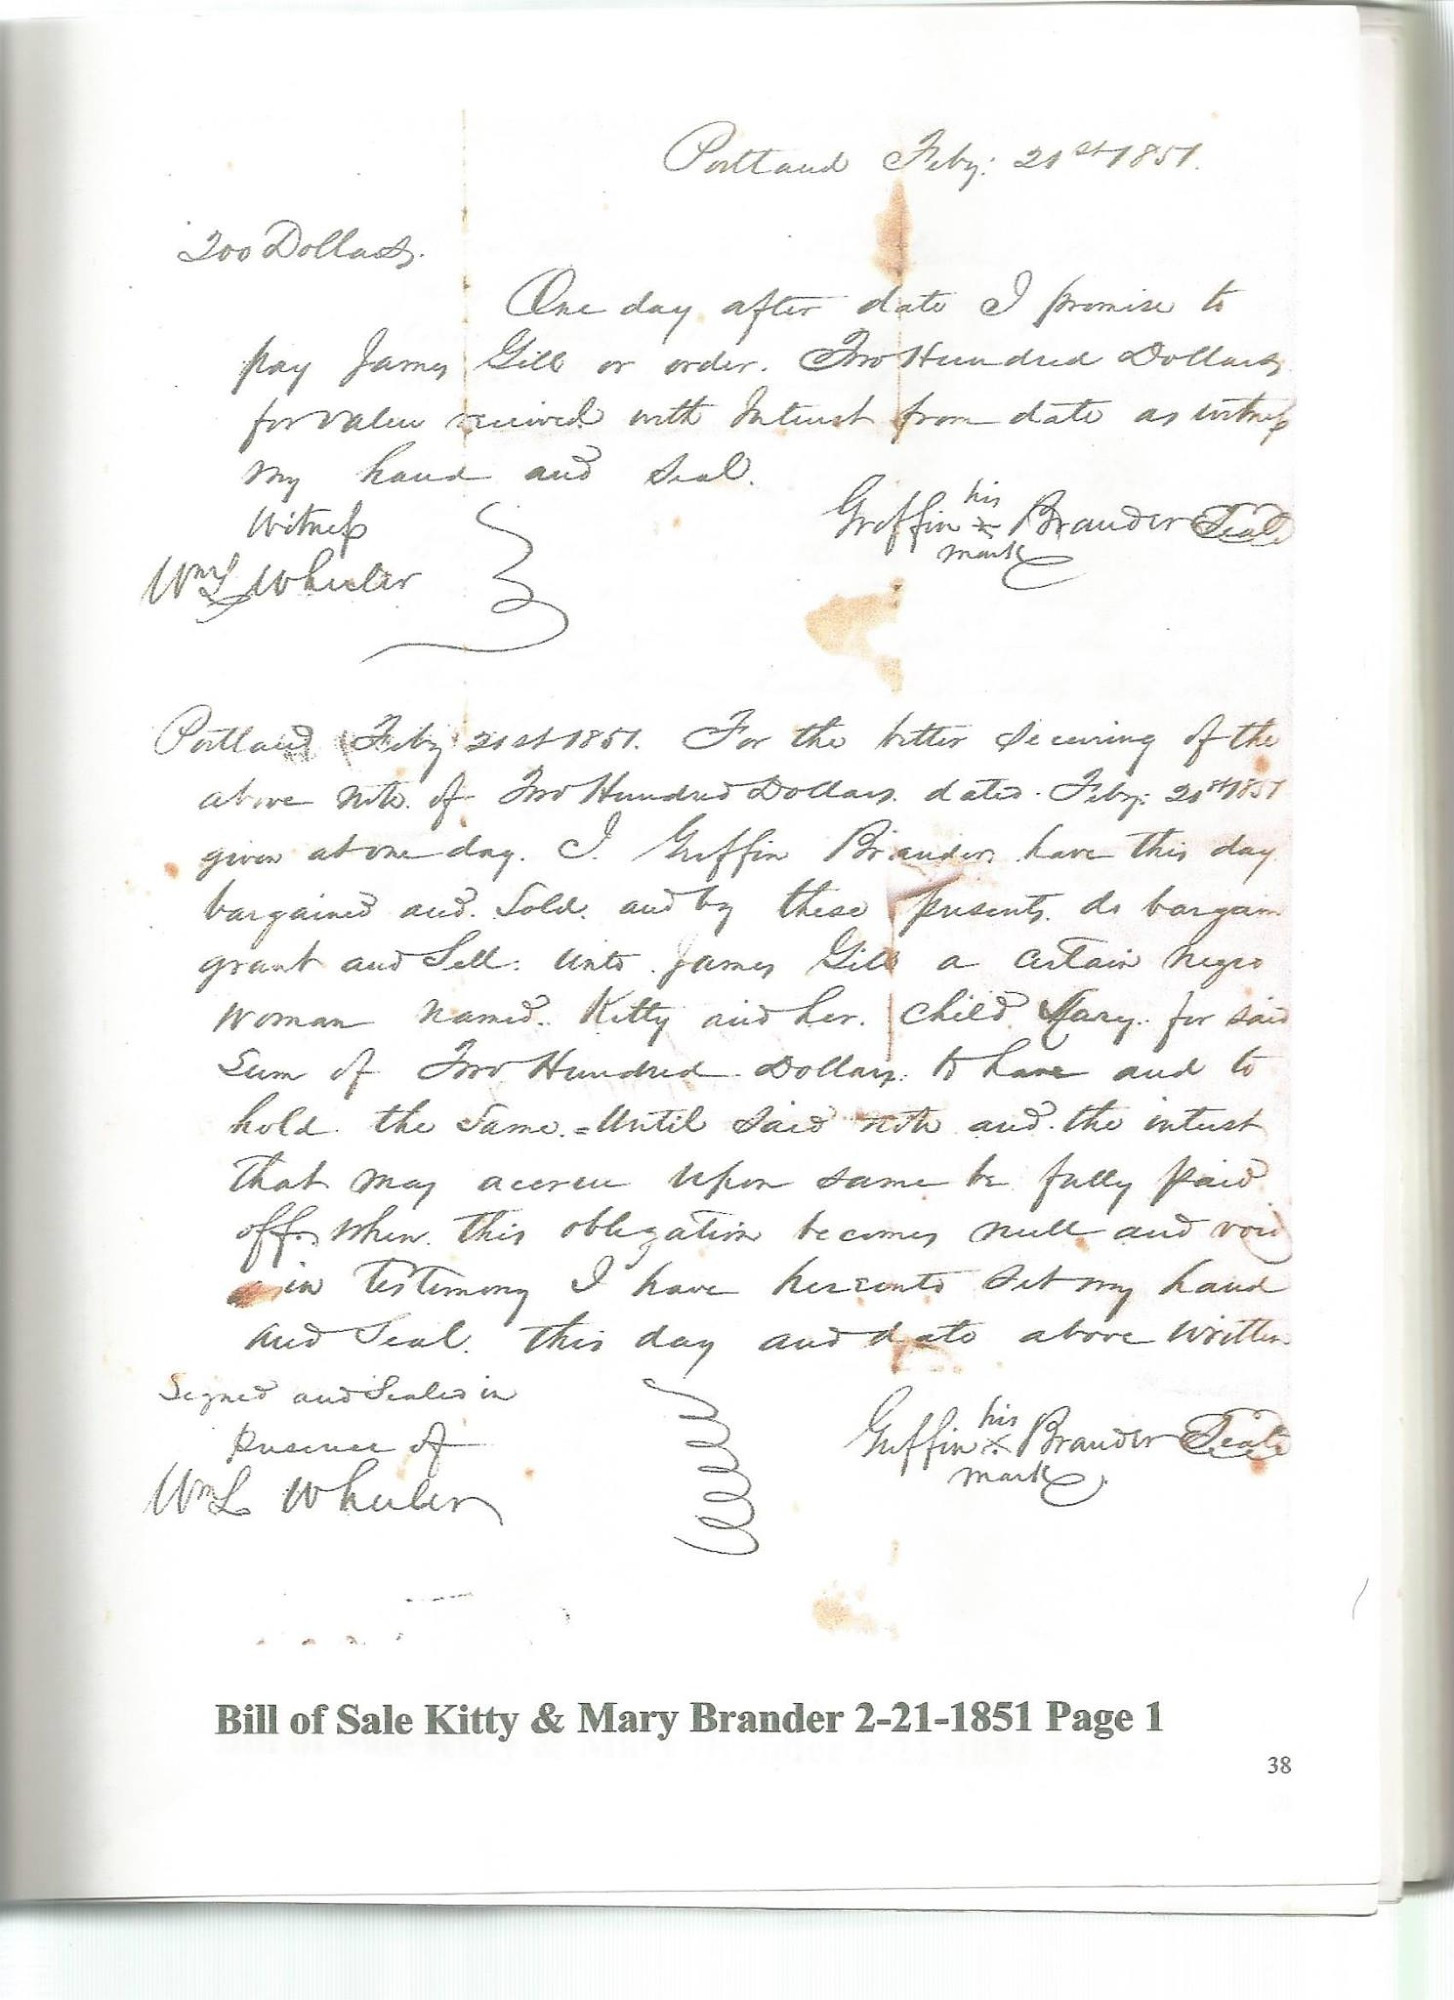 Portland Feby: 21st 1851.
200 Dollars.
One day after date I promise to
pay James Gill or order. Two Hundred Dollars
for value received with Interest from date as witness
my hand and seal.
Witness
Wm L Wheeler
his
Griffin x Brander Seal
mark
Portland Feby 21st 1851. For the better securing of the
above note of Two Hundred Dollars. dated. Feby: 21st 1851
given at one day. I. Griffin Brander have this day
bargained and. Sold. and by these presents. do bargain
grant and Sell: unto James Gill a certain Negro
woman named. Kitty and her. child. Mary. for said
Sum of Two Hundred Dollars: to have and to
hold. the Same. = Until said note and. the intrest
that may accrue upon same be fully paid
off. when. this obligation becomes null and void
in testimony I have hereunto Set my hand
and Seal. this day and date above written
Signed and Sealed in
presence of
Wm L Wheeler
his
Griffin x Brander Seal
mark
Bill of Sale Kitty & Mary Brander 2-21-1851 Page 1
38